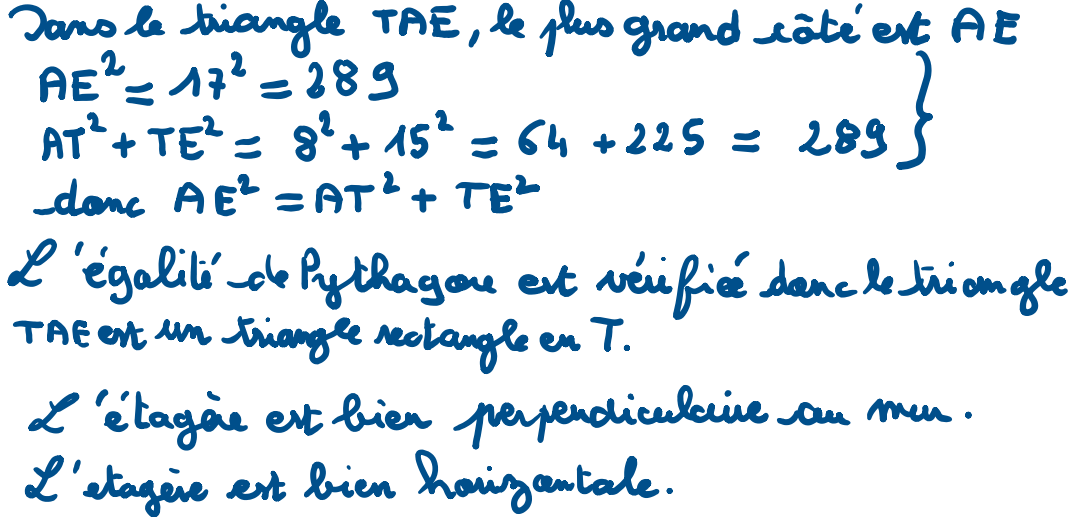 Dans le triangle TAE, le plus grand côté est AE
AE² = 17² = 289
AT² + TE² = 8² + 15² = 64 + 225 = 289 }
donc AE² = AT² + TE²
L'égalité de Pythagore est vérifiée donc le triangle
TAE est un triangle rectangle en T.
L'étagère est bien perpendiculaire au mur.
L'etagère est bien horizontale.